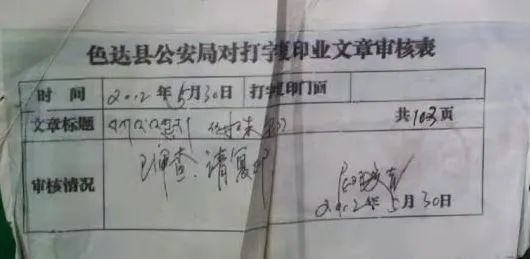 色达县公安局对打字复印业文章审核表
时间 2012年5月30日 打字复印门面
文章标题 共103页
审核情况 已审查、请复印
2012年5月30日